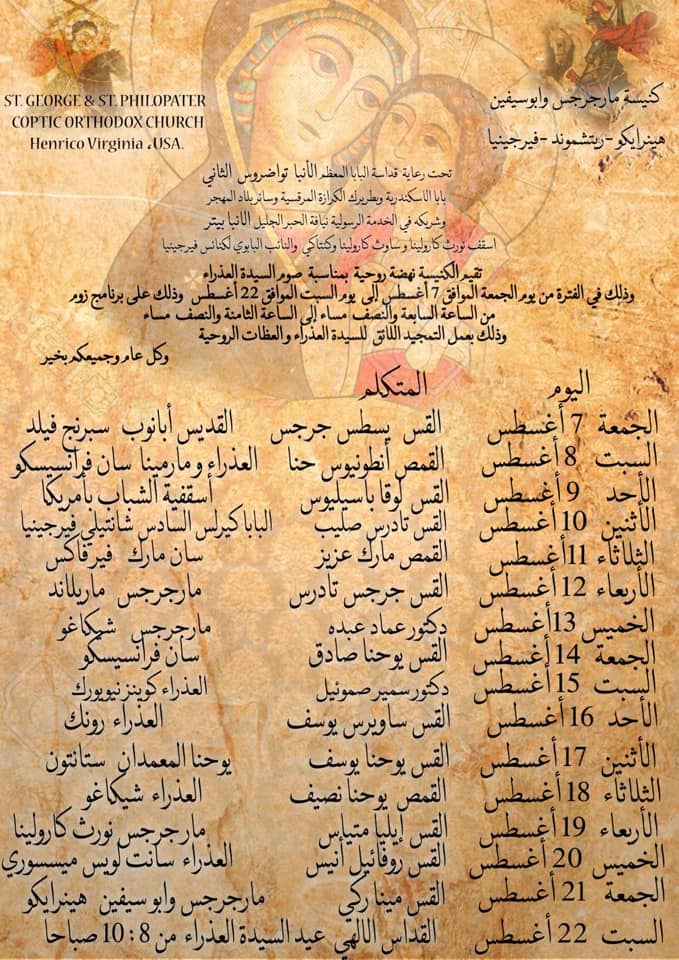 ST. GEORGE & ST. PHILOPATER
COPTIC ORTHODOX CHURCH
Henrico Virginia ،USA.
كنيسة مارجرجس وابوسيفين
هينرايكو -ريتشموند -فيرجينيا
تحت رعاية قداسة البابا المعظم الأنبا تواضروس الثاني
بابا الاسكندرية وبطريرك الكرازة المرقسية وسائر بلاد المهجر
وشريكه في الخدمة الرسولية نيافة الحبر الجليل الانبا بيتر
اسقف نورث كارولينا و ساوث كارولينا وكنتاكي والنائب البابوي لكنائس فيرجينيا
تقيم الكنيسة نهضة روحية بمناسبة صوم السيدة العذراء
وذلك في الفترة من يوم الجمعة الموافق 7 أغسطس إلى يوم السبت الموافق 22 أغسطس وذلك على برنامج زوم
من الساعة السابعة والنصف مساء إلى الساعة الثامنة والنصف مساء
وذلك بعمل التمجيد اللائق للسيدة العذراء والعظات الروحية
وكل عام وجميعكم بخير
اليوم المتكلم
الجمعة 7 أغسطس القس يسطس جرجس القديس أبانوب سبرنج فيلد
السبت 8 أغسطس القمص أنطونيوس حنا العذراء ومارمينا سان فرانسيسكو
الأحد 9 أغسطس القس لوقا باسيليوس أسقفية الشباب بأمريكا
الأثنين 10 أغسطس القس تادرس صليب البابا كيرلس السادس شانتيلي فيرجينيا
الثلاثاء 11 أغسطس القمص مارك عزيز سان مارك فيرفاكس
الأربعاء 12 أغسطس القس جرجس تادرس مارجرجس ماريلاند
الخميس 13 أغسطس دكتور عماد عبده مارجرجس شيكاغو
الجمعة 14 أغسطس القس يوحنا صادق سان فرانسيسكو
السبت 15 أغسطس دكتور سمير صموئيل العذراء كوينز نيويورك
الأحد 16 أغسطس القس ساويرس يوسف العذراء رونك
الأثنين 17 أغسطس القس يوحنا يوسف يوحنا المعمدان ستانتون
الثلاثاء 18 أغسطس القمص يوحنا نصيف العذراء شيكاغو
الأربعاء 19 أغسطس القس إيليا متياس مارجرجس نورث كارولينا
الخميس 20 أغسطس القس روفائيل أنيس العذراء سانت لويس ميسسوري
الجمعة 21 أغسطس القس مينا زكي مارجرجس وابوسيفين هينرايكو
السبت 22 أغسطس القداس اللالهي عيد السيدة العذراء من 8 : 10 صباحا